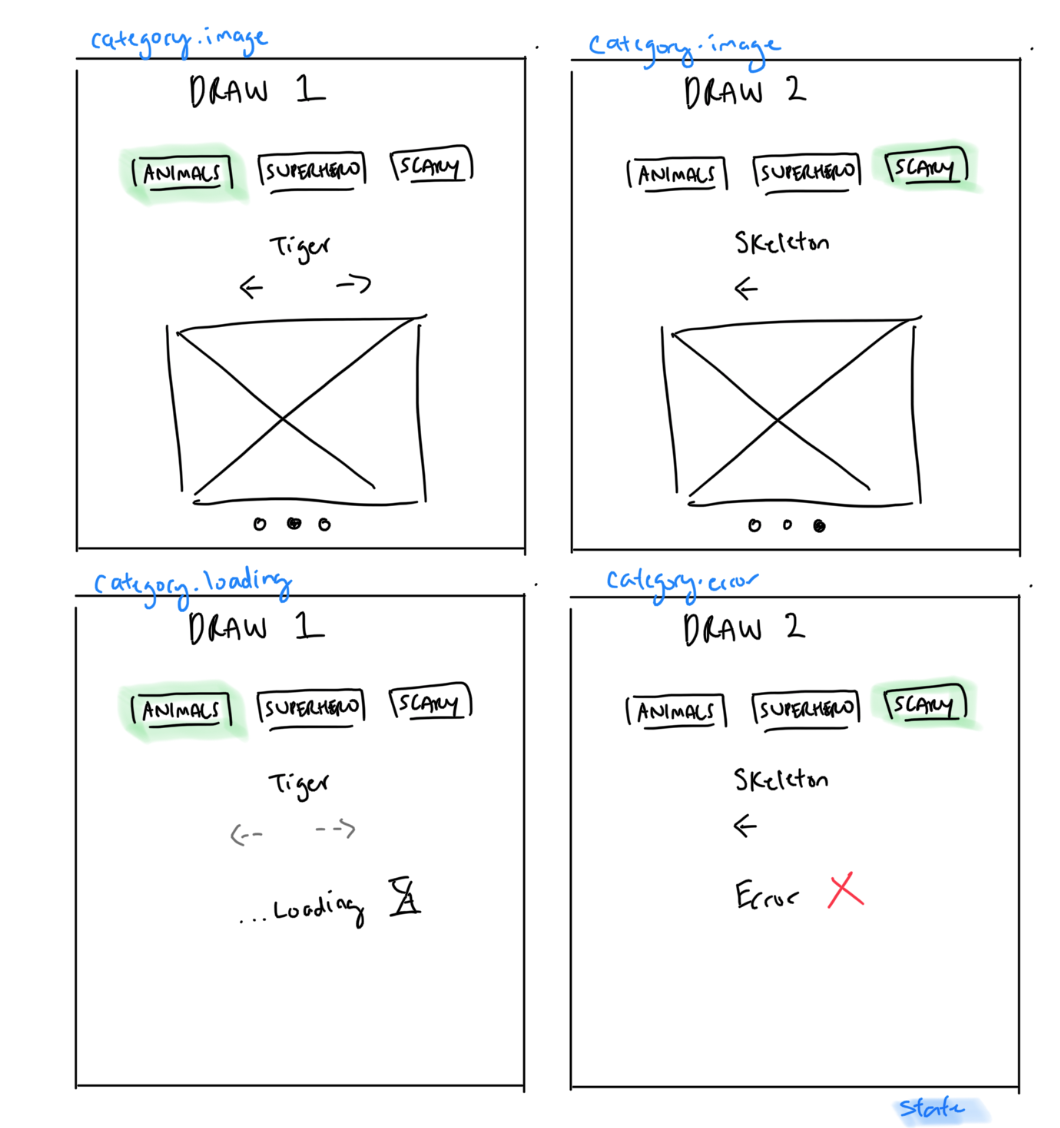 category.image
DRAW 1
ANIMALS SUPERHERO SCARY
Tiger
category.image
DRAW 2
ANIMALS SUPERHERO SCARY
Skeleton
category.loading
DRAW 1
ANIMALS SUPERHERO SCARY
Tiger
...Loading
category.error
DRAW 2
ANIMALS SUPERHERO SCARY
Skeleton
Error X
state